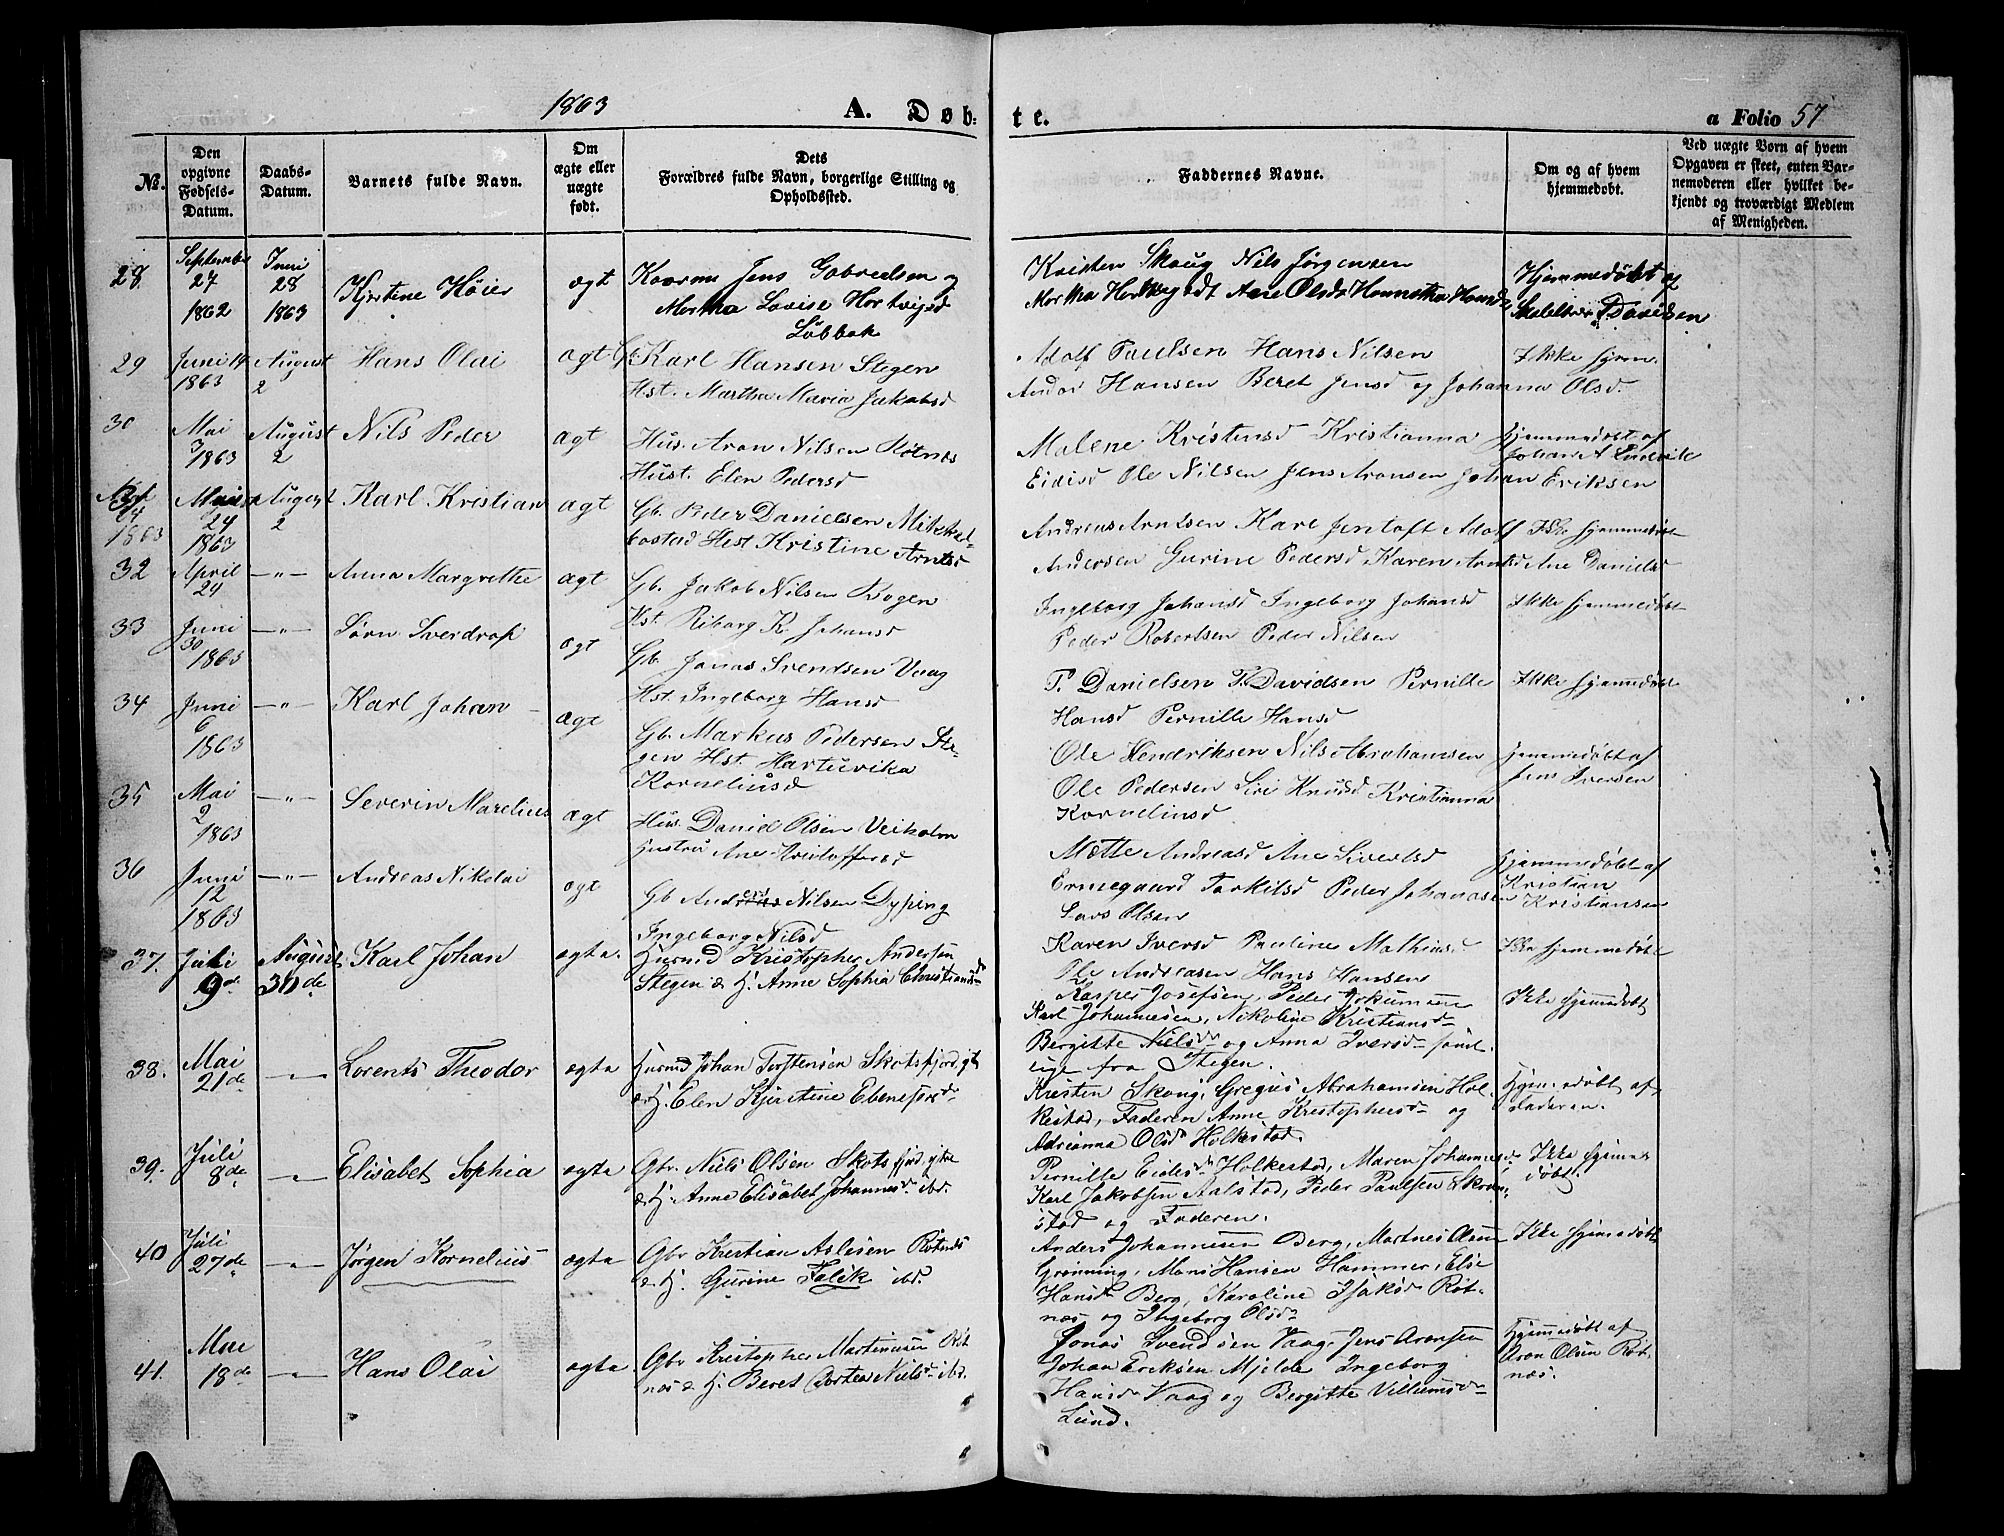 1863 A. Døb-
te. a Folio 57
No.
Den opgivne Fødsels-Datum.
Daabs-Datum.
Barnets fulde Navn.
Om ægte eller uægte født.
Dets Forældres fulde Navn, borgerlige Stilling og Opholdssted.
Faddernes Navne.
Om og af hvem hjemmedøbt.
Ved uægte Børn af hvem Opgaven er skeet, enten Barnemoderen eller hvilket bekjendt og troværdigt Medlem af Menigheden.
28. September 27 1862 Juni 28 1863 Kjerstine Høier ægt
Jens Gabrielsen og
Martha Lovise Hartvigsd
Løbbak
Kristen Skaug Nils Jørgensen
Hjemmedøbt og
Davidsen
29 Juni 14 1863 August 2 Hans Olai ægt
Gb. Karl Hansen Stegen
Hst. Martha Maria Jakobsd
Adolf Paulsen Hans Nilsen
Andor Hansen Beret Jensd og Johanna Olsd.
Ikke hjem.
30 Mai 3 1863 August 2 Nils Peder ægt
Hus. Aron Nilsen Røtnæs
Hust. Elen Pedersd
Malene Kristensd Kristianna
Eidisd Ole Nilsen Jens Aronsen Johan Eriksen
hjemmedøbt af
Johan A
24 1863 August 2 Karl Kristian ægt
Gb. Peder Danielsen
Hst Kristine Arntsd
Andreas Arntsen Karl Jentoft Adolf
Andersen Gurine Pedersd Karen Arntsd Ane Danielsd
Ikke hjemmedøbt
32 April 24 —"— Anna Margrethe ægt
Gb. Jakob Nilsen Bogen
Hst. Riborg K. Johansd
Ingeborg Johansd Ingeborg Johansd
Peder Robertsen Peder Nilsen
Ikke hjemmedøbt
33 Juni 30 1863 —"— Sørn Sverdrop ægt
Gb. Jonas Svendsen Vaag
Hst. Ingeborg Hansd
P. Danielsen T. Davidsen Pernille
Hansd Pernille Hansd
Ikke hjemmedøbt
34 Juni 6 1863 —"— Karl Johan ægt
Gb. Markus Pedersen Ste-
gen Hst. Hartuvika
Korneliusd
Ole Hendriksen Nils Abrahamsen
Ole Pedersen Siri Knudsd Kristianna
Kornelinsd
hjemmedøbt af
Jens Iversen
35 Mai 2 1863 —"— Severin Marelius ægt
Hus. Daniel Olsen Veiholm
Hustru Ane Kristoffersd
Mette Andreasd Ane Sivertsd
Ermegaard Torkilsd Peder Johanasen
Lars Olsen
hjemmedøbt af
Kristian
Kristiansen
36 Juni 12 1863 —"— Andreas Nikolai ægt
Gb Nilsen Dyping
Ingeborg Nilsd
Karen Iversd Pauline Mathiasd
Ole Andreasen Hans Hansen
Ikke hjemmedøbt
37. Juli 9de August 30de Karl Johan ægta.
Husmd Kristopher Andersen
Stegen & H. Anne Sophia Christiansd
Kasper Josefsen, Peder Jokumsen
Karl Johannesen, Nikoline Kristiansd
Bergitte Nielsd og Anna Iversd saml.
lige fra Stegen.
Ikke hjemmdøbt
38. Mai 21de —"— Lorents Theodor ægta
Husmd Johan Torstensen Skotsfjord
& H. Elen Kjerstine Ebenesersd
Kresten Skoug, Gregus Abrahamsen Hol-
kestad, Faderen Anne Kristophersd og
Adrianna Olsd Holkestad.
Hjemmedøbt af
Faderen.
39. Juli 8de —"— Elisabet Sophia ægta
Gbr. Niels Olsen Skotsfjord
& H. Anne Elisabet Johannesd. ibd.
Pernille Eidesd Holkestad, Maren Johannesd
Karl Jakobsen Aalstad, Peder Paulsen Skrøn-
stad og Faderen.
Ikke hjemme
døbt.
40 Juli 27de —"— Jørgen Kornelius ægta
Gbr Kristian Aslesen Røtnæs
& H. Gurine Falck ibd.
Anders Johannesen Berg, Martnes Olsen
Grønning, Mons Hansen Hammer, Else
Hansd Berg, Karoline Isaksd Røt-
næs og Ingeborg Olsd
Ikke hjemmedøbt
41. Mai 18de —"— Hans Olai ægta
Gbr Kristopher Martinusen Røt
næs & H. Beret Dortea Nielsd ibd.
Jonas Svendsen Vaag Jens Aronsen
Johan Eriksen Mjelde Ingeborg
Hansd Vaag og Bergitte Villumsd
Lund.
Hjemmedøbt af
Aron Olsen Røt-
næs.